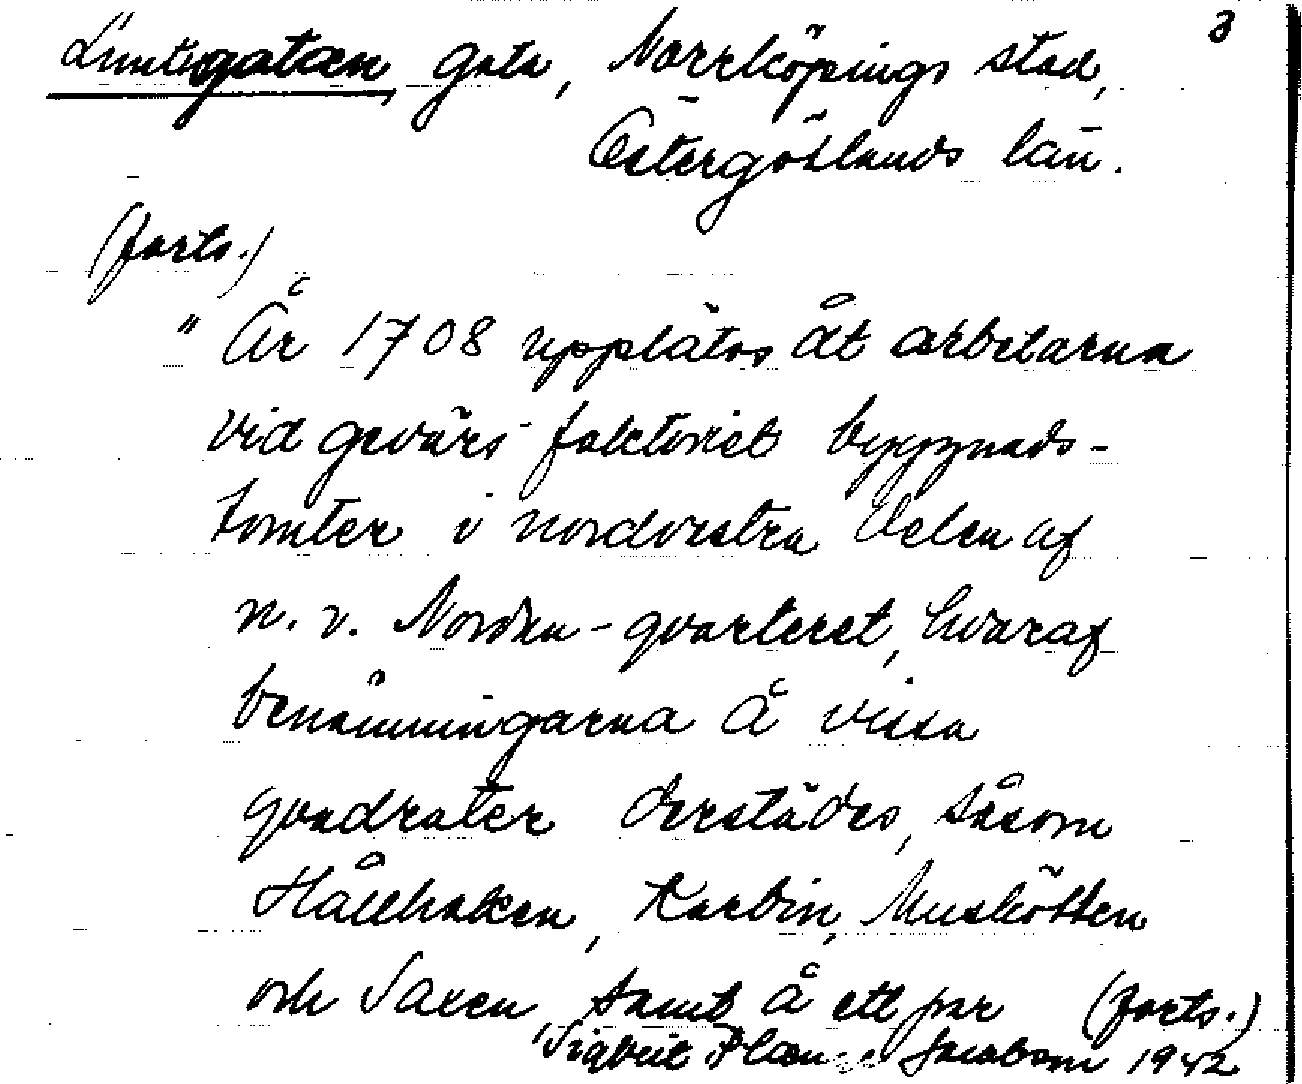 3
Luntgatan, gata, Norrköpings stad,
Östergötlands län.
(forts.)
" År 1708 upplätos åt arbetarna
vid gevärs-faktoriet byggnads-
tomter i nordvestra delen af
n. v. Norden-qvarteret, hvaraf
benämningarna å vissa
qvadrater derstädes, såsom
Hållhaken, Karbin, Muskötten
och Saxen, samt å ett par (forts.)
Sigbrit Plænge Jacobson 1942